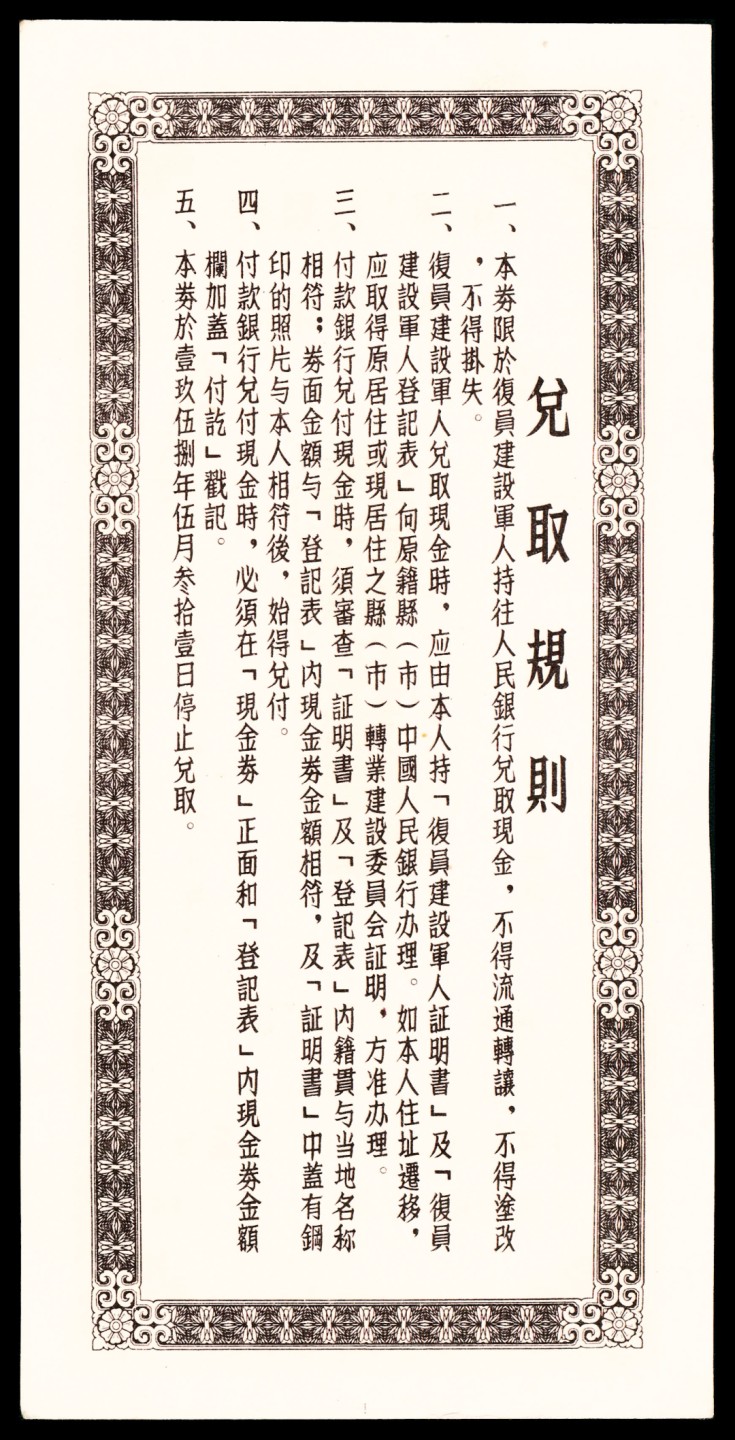 兌取規則
一、本券限於復員建設軍人持往人民銀行兌取現金，不得流通轉讓，不得塗改
，不得掛失。
二、復員建設軍人兌取現金時，应由本人持「復員建設軍人証明書」及「復員
建設軍人登記表」向原籍縣（市）中國人民銀行办理。如本人住址遷移，
应取得原居住或現居住之縣（市）轉業建設委員会証明，方准办理。
三、付款銀行兌付現金時，須審查「証明書」及「登記表」内籍貫与当地名称
相符；券面金額与「登記表」内現金券金額相符，及「証明書」中蓋有鋼
印的照片与本人相符後，始得兌付。
四、付款銀行兌付現金時，必須在「現金券」正面和「登記表」内現金券金額
欄加蓋「付訖」戳記。
五、本券於壹玖伍捌年伍月叁拾壹日停止兌取。